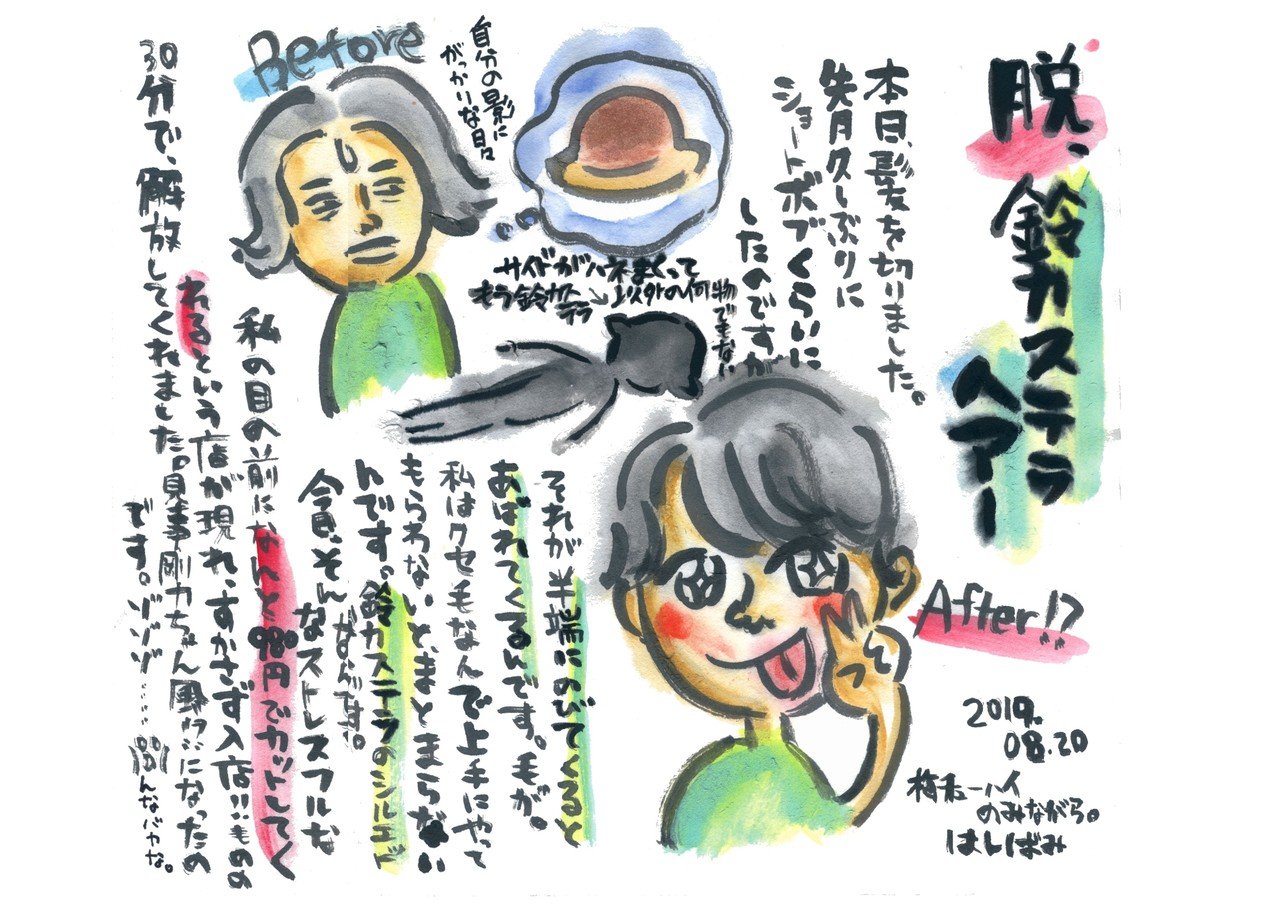 脱、
鈴カステラ
ヘアー
本日、髪を切りました。
先月久しぶりに
ショートボブくらいに
したのですが
Before
自分の影に
がっかいな日々
サイドがハネまくって
もう鈴カステラ以外の何物でもない
それが半端にのびてくると
あばれてくるんです。毛が。
私はクセ毛なんで上手にやって
もらわないと、まとまらない
んです。鈴カステラのシルエット
なんです。
今回、そん
なストレスフルな
私の目の前になんと980円でカットしてく
れるという店が現れ、すかさず入店!!ものの
30分で、解放してくれました。見事剛力ちゃん風になったの
です。ゾゾゾ……
んなバカな。
After!?
2019.
08.20
のみながら。
はしばみ